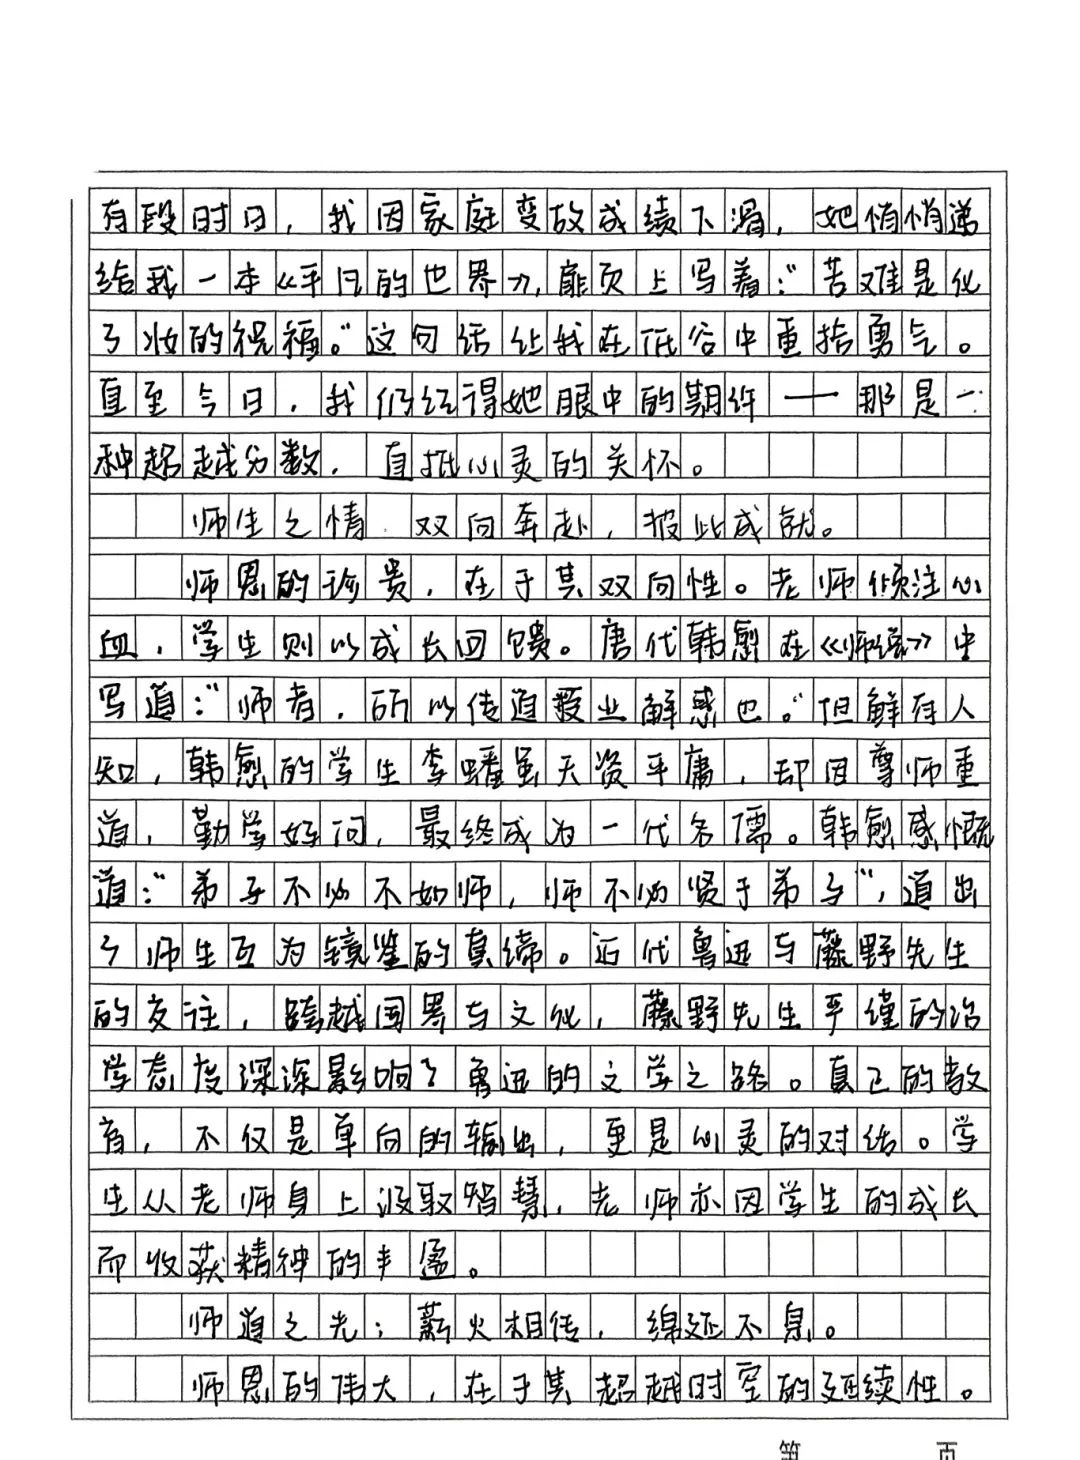 有段时日，我因家庭变故成绩下滑，她悄悄递
给我一本《平凡的世界》，扉页上写着：“苦难是化
了妆的祝福。”这句话让我在低谷中重拾勇气。
直至今日，我仍记得她眼中的期许——那是一
种超越分数，直抵心灵的关怀。
师生之情：双向奔赴，彼此成就。
师恩的珍贵，在于其双向性。老师倾注心
血，学生则以成长回馈。唐代韩愈在《师说》中
写道：“师者，所以传道受业解惑也。”但鲜有人
知，韩愈的学生李蟠虽天资平庸，却因尊师重
道，勤学好问，最终成为一代名儒。韩愈感慨
道：“弟子不必不如师，师不必贤于弟子”，道出
了师生互为镜鉴的真谛。近代鲁迅与藤野先生
的交往，跨越国界与文化，藤野先生严谨的治
学态度深深影响了鲁迅的文学之路。真正的教
育，不仅是单向的输出，更是心灵的对话。学
生从老师身上汲取智慧，老师亦因学生的成长
而收获精神的丰盈。
师道之光：薪火相传，绵延不息。
师恩的伟大，在于其超越时空的延续性。
第 页